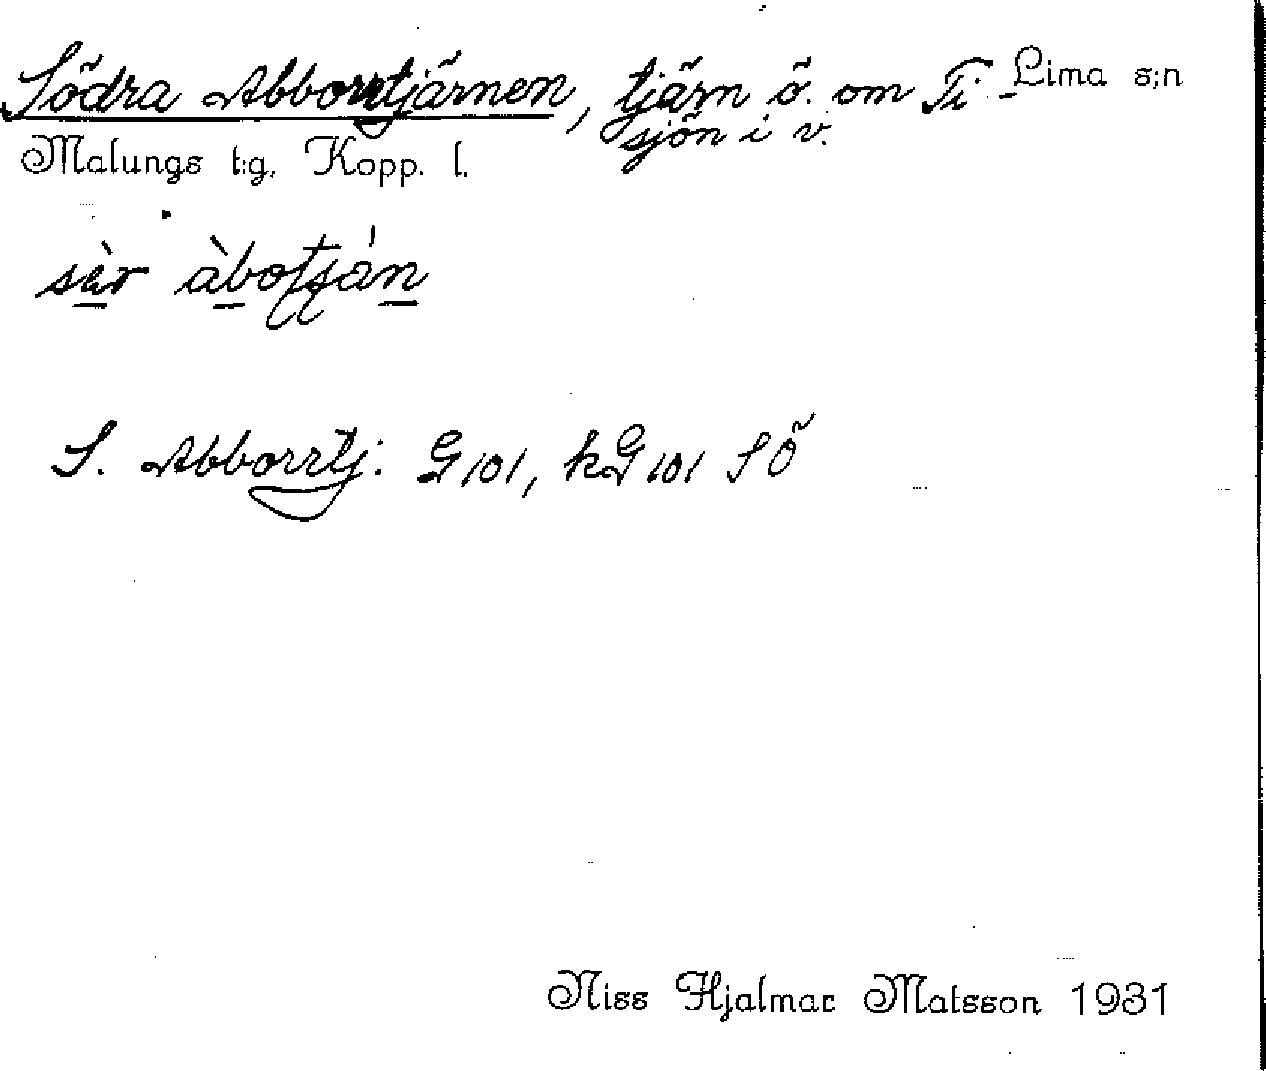 Södra Abborrtjärnen, tjärn ö. om Ti- Lima s;n
sjön i v.
Malungs t:g. Kopp. l.
sèr àbotján
S. Abborrtj: G 101, kG 101 SÖ
Niss Hjalmar Matsson 1931